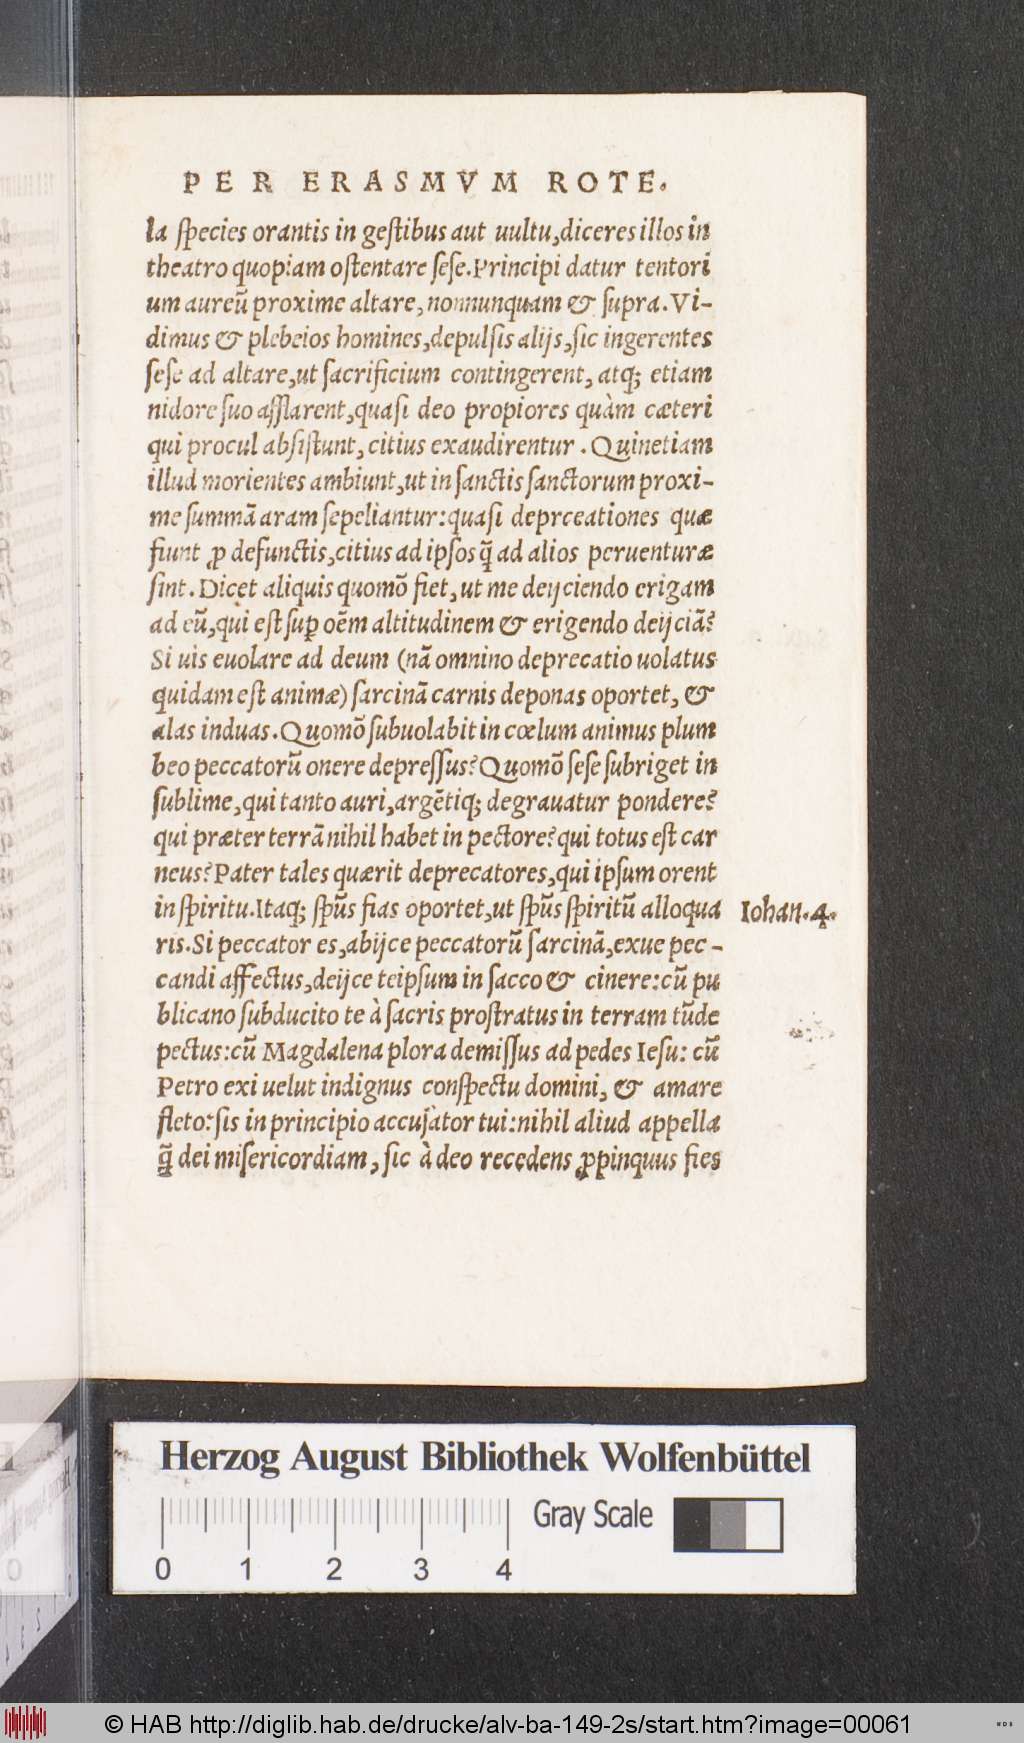 PER ERASMVM ROTE.
la ſpecies orantis in geſtibus aut uultu,diceres illos in
theatro quopiam oſtentare ſeſe.Principi datur tentori
um aureū proxime altare, nonnunquam & ſupra.Vi-
dimus & plebeios homines,depulſis alijs,ſic ingerentes
ſeſe ad altare,ut ſacrificium contingerent, atq; etiam
nidore ſuo afflarent,quaſi deo propiores quàm cæteri
qui procul abſiſtunt, citius exaudirentur . Quinetiam
illud morientes ambiunt,ut in ſanctis ſanctorum proxi-
me ſummā aram ſepeliantur:quaſi deprceationes quæ
fiunt ꝓ defunctis,citius ad ipſos q̄ ad alios peruenturæ
ſint. Dicet aliquis quomō fiet, ut me deijciendo erigam
ad eū,qui eſt ſuꝑ oēm altitudinem & erigendo deijciā?
Si uis euolare ad deum (nā omnino deprecatio uolatus
quidam eſt animæ) ſarcinā carnis deponas oportet, &
alas induas. Quomō ſubuolabit in cœlum animus plum
beo peccatorū onere depreſſus? Quomō ſeſe ſubriget in
ſublime, qui tanto auri,argētiq; degrauatur pondere?
qui præter terrā nihil habet in pectore? qui totus eſt car
neus? Pater tales quærit deprecatores,qui ipſum orent
in ſpiritu.Itaq; ſpūs fias oportet,ut ſpūs ſpiritū alloqua
Iohan.4.
ris.Si peccator es,abijce peccatorū ſarcinā,exue pec-
candi affectus,deijce teipſum in ſacco & cinere:cū pu
blicano ſubducito te à ſacris proſtratus in terram tūde
pectus:cū Magdalena plora demiſſus ad pedes Ieſu: cū
Petro exi uelut indignus conſpectu domini, & amare
fleto:ſis in principio accuſator tui:nihil aliud appella
q̄ dei miſericordiam, ſic à deo recedens ꝓpinquus fies
Herzog August Bibliothek Wolfenbüttel
Gray Scale
0 1 2 3 4
© HAB http://diglib.hab.de/drucke/alv-ba-149-2s/start.htm?image=00061